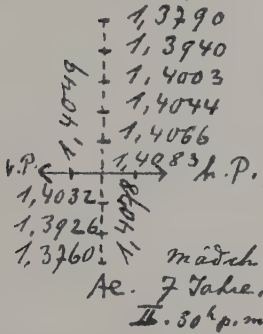 1,3790
1,3940
1,4003
1,4044
1,4066
1,4083
1,4049
v.P.
h.P.
1,4032
1,3926
1,3760
1,4078
Mädch
Ae. 7 Jahre,
II. 30h p.m